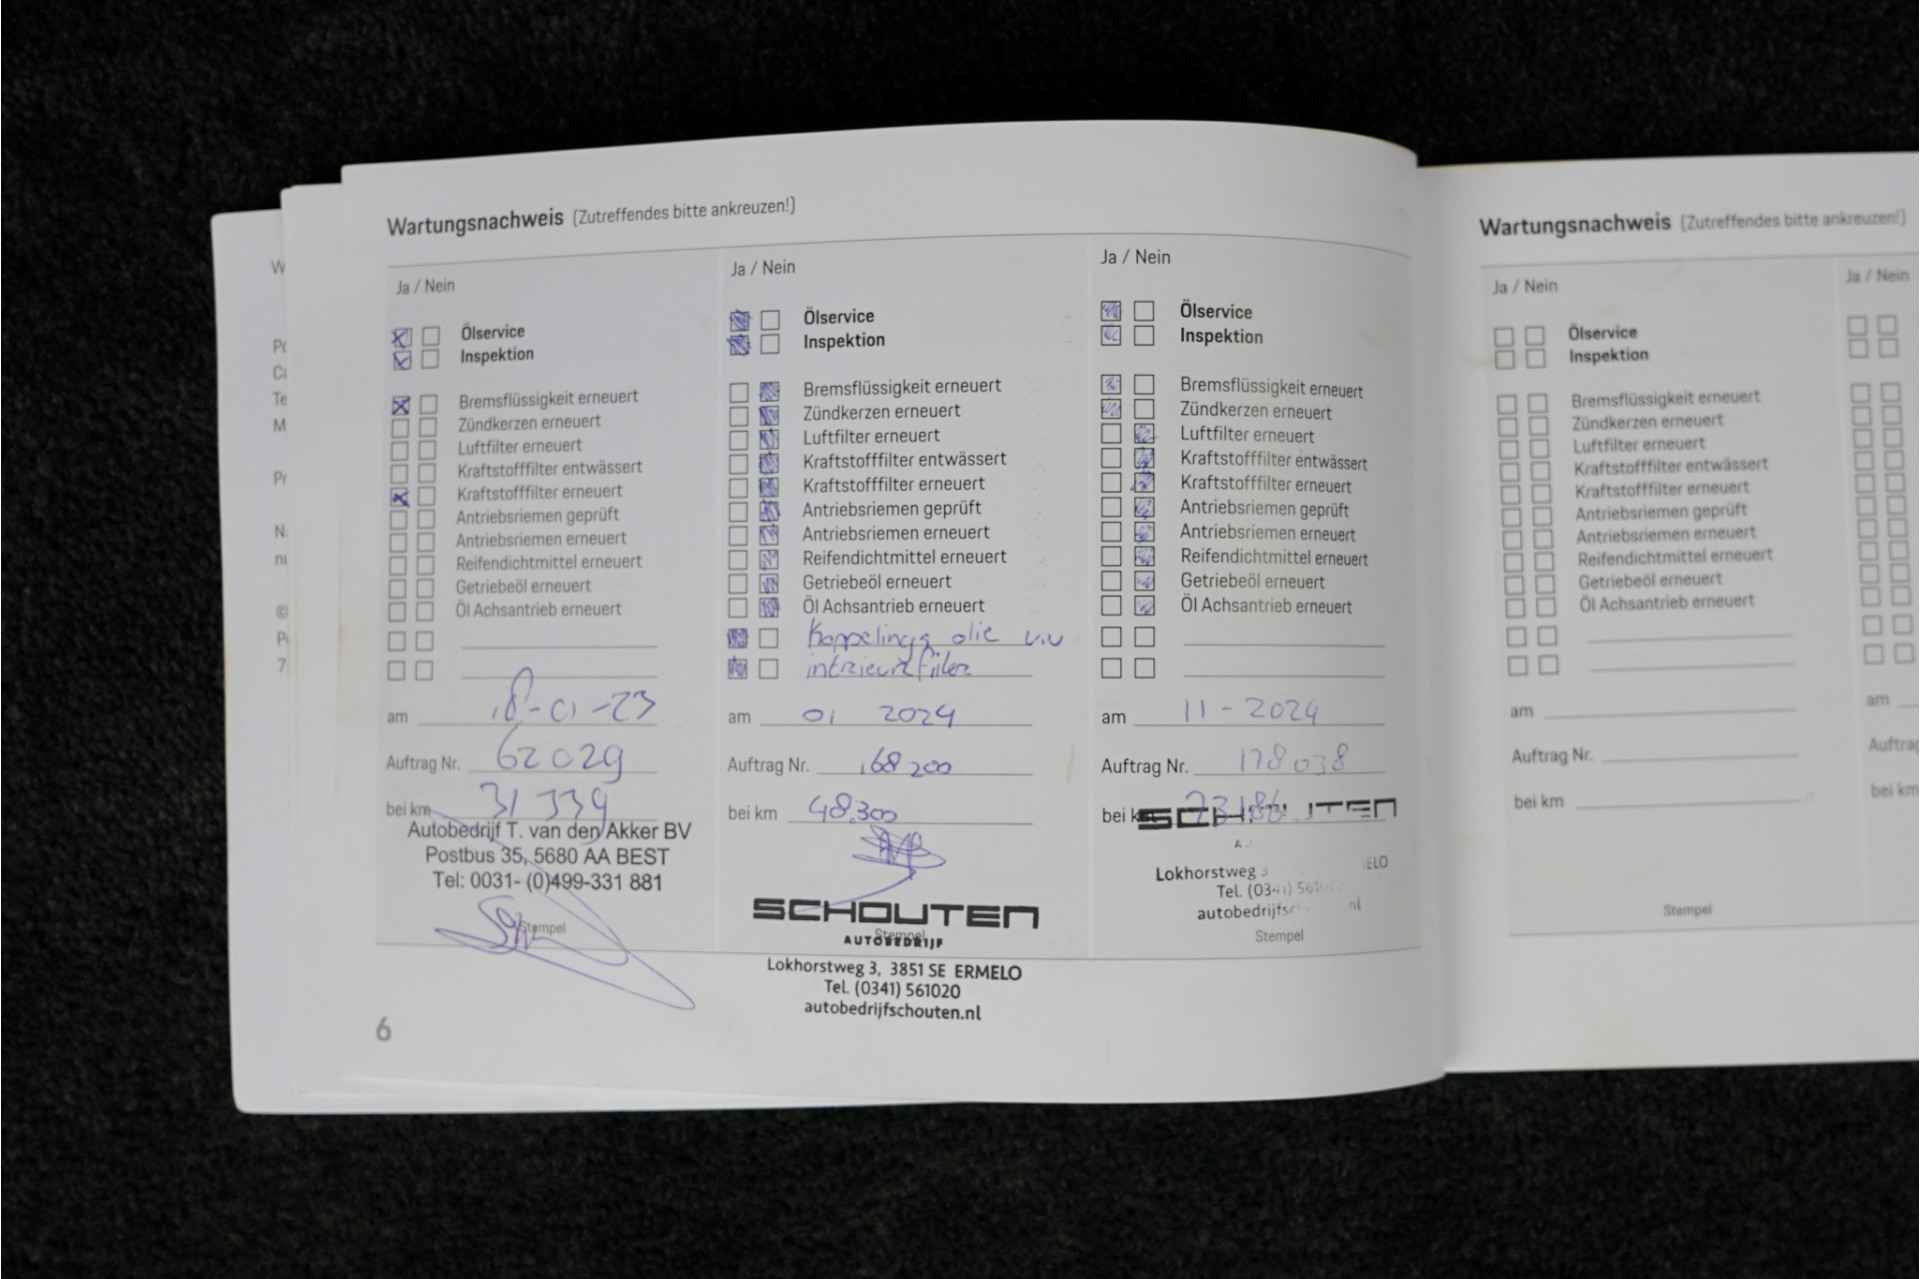 Wartungsnachweis (Zutreffendes bitte ankreuzen!)
Ja / Nein
Ölservice
Inspektion
Bremsflüssigkeit erneuert
Zündkerzen erneuert
Luftfilter erneuert
Kraftstofffilter entwässert
Kraftstofffilter erneuert
Antriebsriemen geprüft
Antriebsriemen erneuert
Reifendichtmittel erneuert
Getriebeöl erneuert
Öl Achsantrieb erneuert
am 18-01-23
Auftrag Nr. 62029
bei km 31339
Autobedrijf T. van den Akker BV
Postbus 35, 5680 AA BEST
Tel: 0031- (0)499-331 881
Stempel
6
Ja / Nein
Ölservice
Inspektion
Bremsflüssigkeit erneuert
Zündkerzen erneuert
Luftfilter erneuert
Kraftstofffilter entwässert
Kraftstofffilter erneuert
Antriebsriemen geprüft
Antriebsriemen erneuert
Reifendichtmittel erneuert
Getriebeöl erneuert
Öl Achsantrieb erneuert
Koppelings olie v.v
am 01 2024
Auftrag Nr. 168200
bei km 48.300
SCHOUTEN
Stempel
AUTOBEDRIJF
Lokhorstweg 3, 3851 SE ERMELO
Tel. (0341) 561020
autobedrijfschouten.nl
Ja / Nein
Ölservice
Inspektion
Bremsflüssigkeit erneuert
Zündkerzen erneuert
Luftfilter erneuert
Kraftstofffilter entwässert
Kraftstofffilter erneuert
Antriebsriemen geprüft
Antriebsriemen erneuert
Reifendichtmittel erneuert
Getriebeöl erneuert
Öl Achsantrieb erneuert
am 11-2024
Auftrag Nr. 178038
bei km
SCHOUTEN
Lokhorstweg
Tel. (0341)
Stempel
Wartungsnachweis (Zutreffendes bitte ankreuzen!)
Ja / Nein
Ölservice
Inspektion
Bremsflüssigkeit erneuert
Zündkerzen erneuert
Luftfilter erneuert
Kraftstofffilter entwässert
Kraftstofffilter erneuert
Antriebsriemen geprüft
Antriebsriemen erneuert
Reifendichtmittel erneuert
Getriebeöl erneuert
Öl Achsantrieb erneuert
am
Auftrag Nr.
bei km
Stempel
Ja / Nein
am
bei km